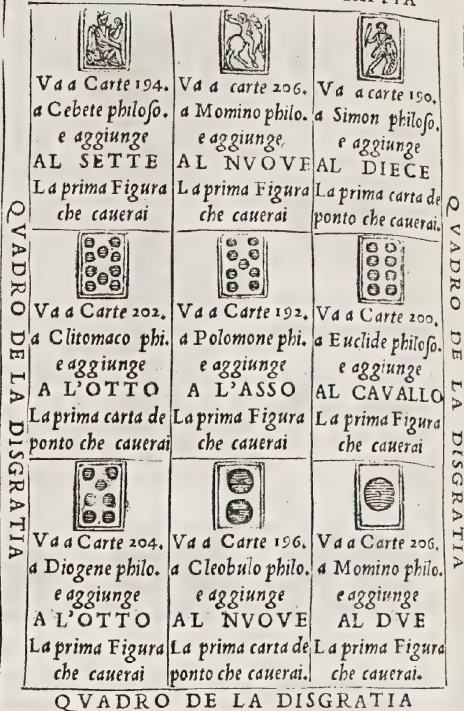 Va a Carte 194.
a Cebete philoſo.
e aggiunge
AL SETTE
La prima Figura
che cauerai
Va a carte 206.
a Momino philo.
e aggiunge,
AL NVOVE
La prima Figura
che cauerai
Va a carte 190.
a Simon philoſo.
e aggiunge
AL DIECE
La prima carta de
ponto che cauerai.
QVADRO DE LA DISGRATIA
Va a Carte 202.
a Clitomaco phi.
e aggiunge
A L'OTTO
La prima carta de
ponto che cauerai
Va a Carte 192.
a Polomone phi.
e aggiunge
A L'ASSO
La prima Figura
che cauerai
Va a Carte 200.
a Euclide philoſo.
e aggiunge
AL CAVALLO
La prima Figura
che cauerai
QVADRO DE LA DISGRATIA
Va a Carte 204.
a Diogene philo.
e aggiunge
A L'OTTO
La prima Figura
che cauerai
Va a Carte 196.
a Cleobulo philo.
e aggiunge
AL NVOVE
La prima carta de
ponto che cauerai.
Va a Carte 206.
a Momino philo.
e aggiunge
AL DVE
La prima Figura
che cauerai.
QVADRO DE LA DISGRATIA